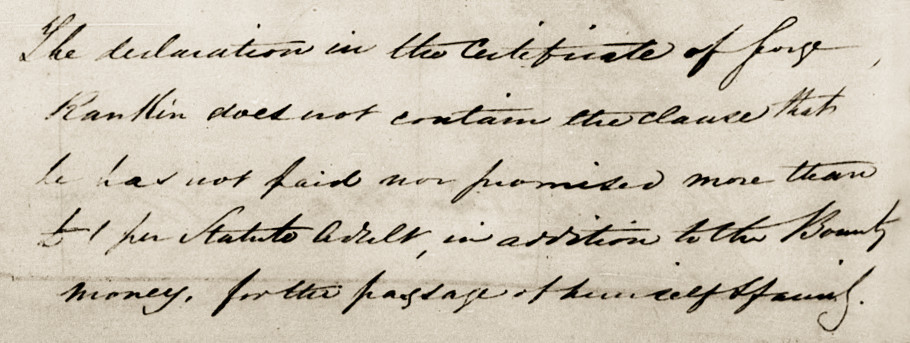 The declaration in the Certificate of George
Rankin does not contain the clause that
he has not paid nor promised more than
£1 per Statute Adult, in addition to the Bounty
money, for the passage of himself & family.